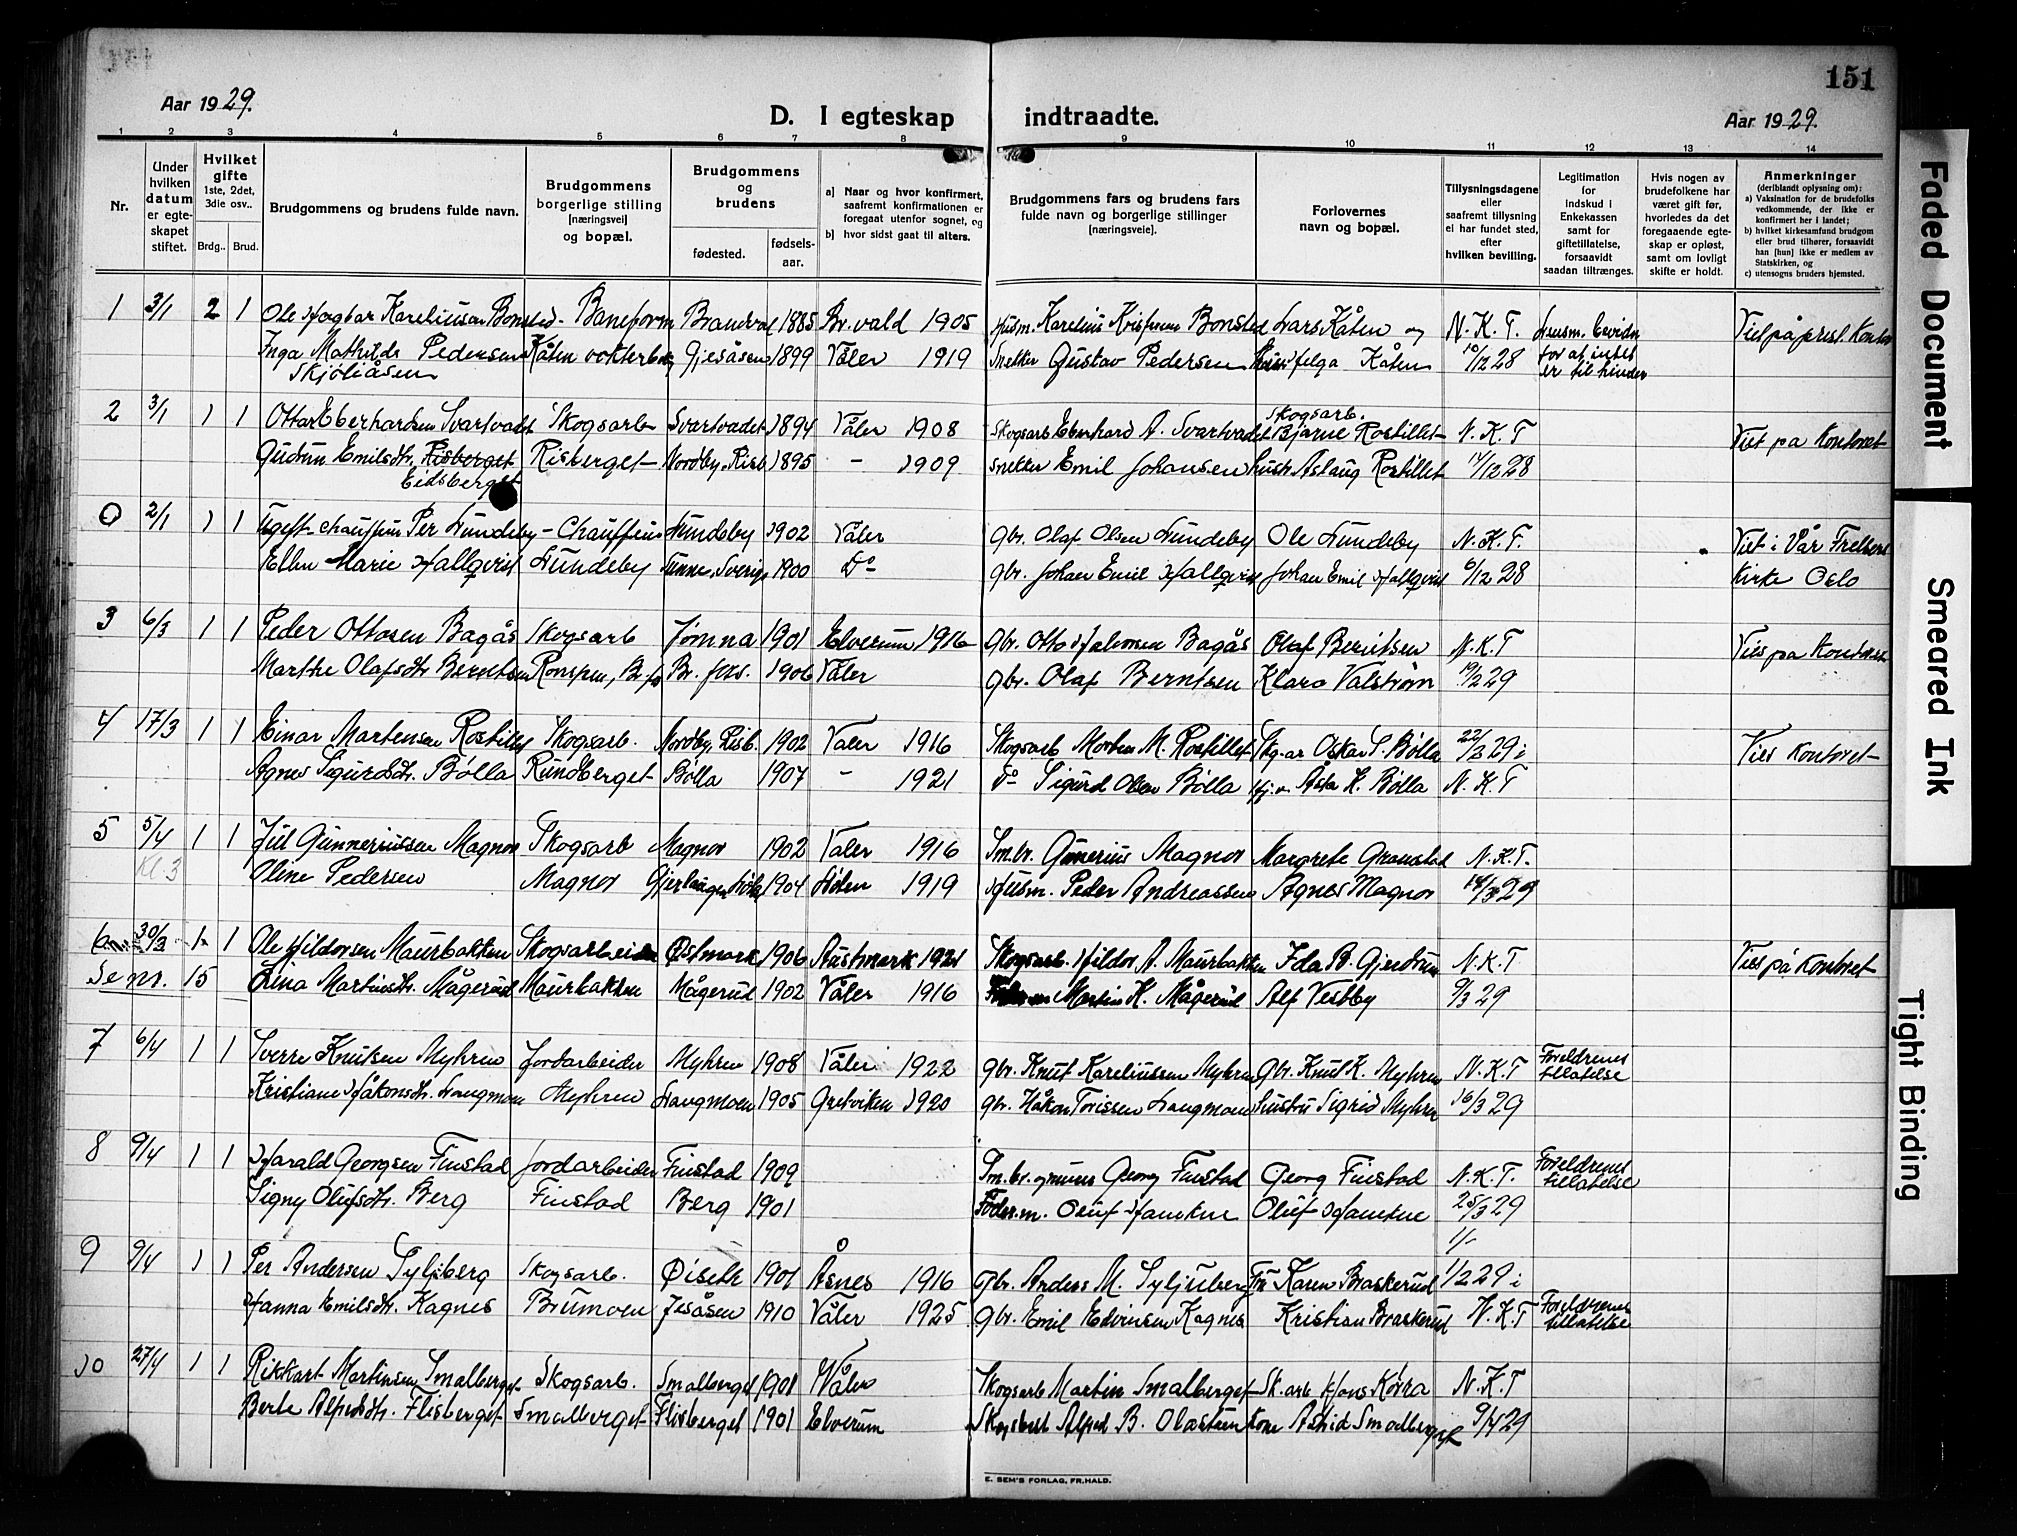 151
Aar 1929.
D. I egteskap indtraadte.
Aar 1929.
1 2 3 4 5 6 7 8 9 10 11 12 13 14
Nr.
Under hvilken datum er egteskapet stiftet.
Hvilket gifte 1ste, 2det, 3die osv..
Brdg.. Brud.
Brudgommens og brudens fulde navn.
Brudgommens borgerlige stilling [næringsvei] og bopæl.
Brudgommens og brudens
fødested.
fødsels-aar.
a) Naar og hvor konfirmert, saafremt konfirmationen er foregaat utenfor sognet, og
b) hvor sidst gaat til alters.
Brudgommens fars og brudens fars fulde navn og borgerlige stillinger [næringsveie].
Forlovernes navn og bopæl.
Tillysningsdagene eller saafremt tillysning ei har fundet sted, efter hvilken bevilling.
Legitimation for indskud i Enkekassen samt for giftetillatelse, forsaavidt saadan tiltrænges.
Hvis nogen av brudefolkene har været gift før, hvorledes da det foregaaende egteskap er opløst, samt om lovligt skifte er holdt.
Anmerkninger (deriblandt oplysning om):
a) Vaksination for de brudefolks vedkommende, der ikke er konfirmert her i landet;
b) hvilket kirkesamfund brudgom eller brud tilhører, forsaavidt han [hun] ikke er medlem av Statskirken, og
c) utensogns bruders hjemsted.
1 3/1 2 1 Ole Hagbar Kareliusen Bonsted - Baneform Brandval 1885 Br.vald 1905 Husm. Karelius Kristensen Bonsted Lars Kåten og N.K.T. Lensm. bevidn. Viet på prest. Kontor
Inga Mathilde Pedersen Kåten vokterbolig Gjesåsen 1899 Våler 1919 Snekker Gustav Pedersen Helga Kåten 10/12 28 for at intet
Skjøliåsen er til hinder
2 3/1 1 1 Ottar Eberhardsen Svartvadet Skogsarb Svartvadet 1894 Våler 1908 Skogsarb Eberhard A. Svartvadet Skogsarb. Bjarne Rostillet N.K.T Viet på Kontoret
Gudrun Emilsdtr. Risberget Risberget Nordby, Risb 1895 - 1909 snekker Emil Johansen hustr. Aslaug Rostillet 14/12 28
Eidsberget
0 2/1 1 1 Ugift chauffeur Per Lundeby - Chauffeur Lundeby 1902 Våler Gbr. Olaf Olsen Lundeby Ole Lundeby N.K.T. Viet i Vår Frelsers
Ellen Marie Hallqvist Lundeby Sunne, Sverige 1900 Do gbr. Johan Emil Hallqvist Johan Emil Hallqvist 6/12 28 Kirke Oslo
3 6/3 1 1 Peder Ottosen Bagås Skogsarb Jømna 1901 Elverum 1916 Gbr. Otto Halvorsen Bagås Olaf Berntsen N.K.T Vies på Kontoret
Marthe Olafsdtr. Berntsen 1906 Våler gbr. Olaf Berntsen Klara Valstrøm 19/2 29
4 17/3 1 1 Einar Martensen Rostillet Skogsarb. Nordby, Risb. 1902 Våler 1916 Skogsarb Morten M. Rostillet Skg.ar Oskar S. Bølla 22/2 29 i Vies Kontoret
Agnes Sigurdsdtr. Bølla Rundberget Bølla 1907 - 1921 Do Sigurd Olsen Bølla Åsta K. Bølla N.K.T
5 5/4 1 1 Juel Gunneriussen Magnor Skogsarb Magnor 1902 Våler 1916 Sm.br. Gunerius Magnor Margrete Granstad N.K.T.
Kl 3 Oline Pedersen Magnor 1904 1919 Husm. Peder Andreassen Agnes Magnor 14/3 29
6 30/3 1 1 Ole Hildorsen Maurbakken Skogsarbeider Østmark 1906 Austmark 1921 Skogsarb. Hildor A. Maurbakken Ida B. Gjerdrum N.K.T Vies på Kontoret
Se nr. 15 Lina Martinsdtr. Mågerud Maurbakken Mågerud 1902 Våler 1916 Martin H. Mågerud Alf Vestby 9/3 29
7 6/4 1 1 Sverre Knutsen Myhren Jordarbeider Myhren 1908 Våler 1922 gbr. Knut Kareliussen Myhren Gbr. Knut K. Myhren N.K.T Foreldrenes tillatelse
Kristiane Håkonsdtr. Langmoen Myhren Langmoen 1905 Grutviken 1920 gbr. Håkon Torissen Langmoen hustru Sigrid Myhren 16/3 29
8 9/4 1 1 Harald Georgsen Finstad Jordarbeider Finstad 1909 Sm.br. Georg Finstad Georg Finstad N.K.T. Foreldrenes tillatelse
Signy Olufsdtr. Berg Finstad Berg 1901 Føder.m. Oluf Haukne Oluf Haukne 25/3 29
9 9/4 1 1 Per Andersen Syljberg Skogsarb. Øiseth 1901 Åsnes 1916 Gbr. Anders M. Syljuberg Fru Karen Braskerud 1/2 29 i
Hanna Emilsdtr. Kagnes Brumoen Jesåsen 1910 Våler 1925 gbr. Emil Edvinsen Kagnes Kristian Braskerud N.K.T Foreldrenes tillatelse
10 27/4 1 1 Rikkart Martinsen Smalberget Skogsarb. Smalberget 1901 Våler Skogsarb Martin Smalberget Sk.arb Hans Kovra N.K.T
Berte Alfredsdtr. Flisberget Smalberget Flisberget 1901 Elverum Alfred B. Olastuen kone Astrid Smalberget 9/4 29
E. SEM'S FORLAG, FR.HALD.
Faded Document
Smeared Ink
Tight Binding